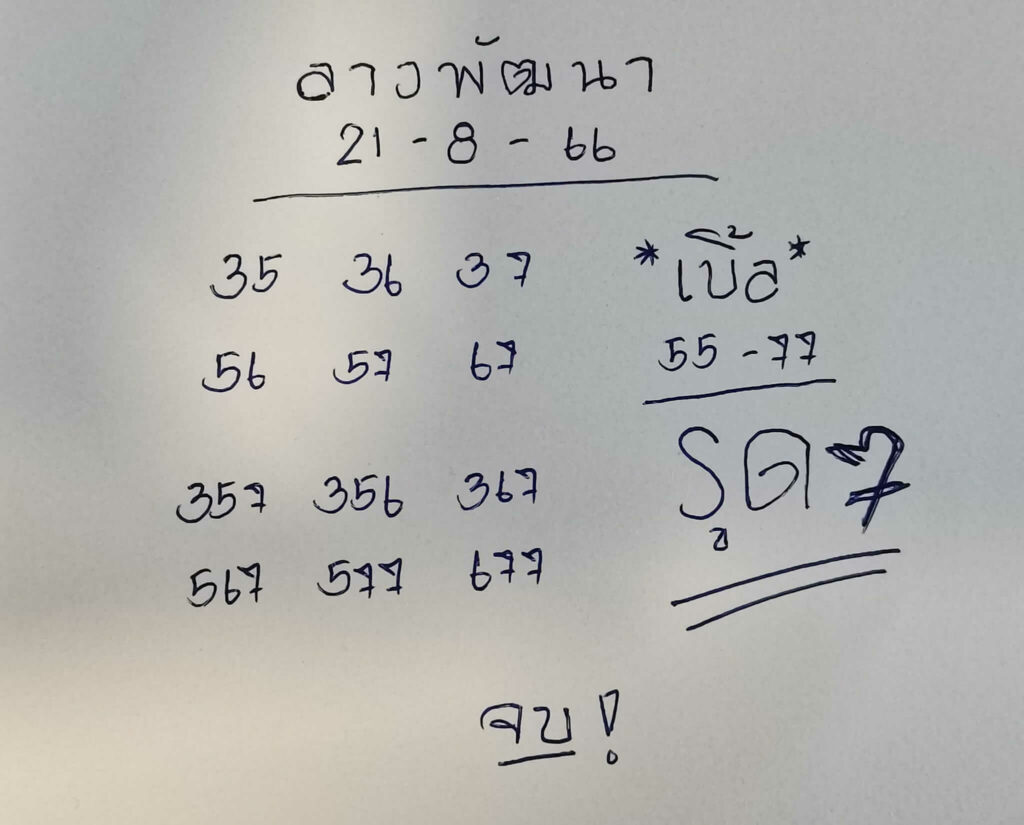 ลาวพัฒนา
21 - 8 - 66
35 36 37
56 57 67
357 356 367
567 577 677
*เบิ้ล*
55 - 77
รูด 7
จบ!